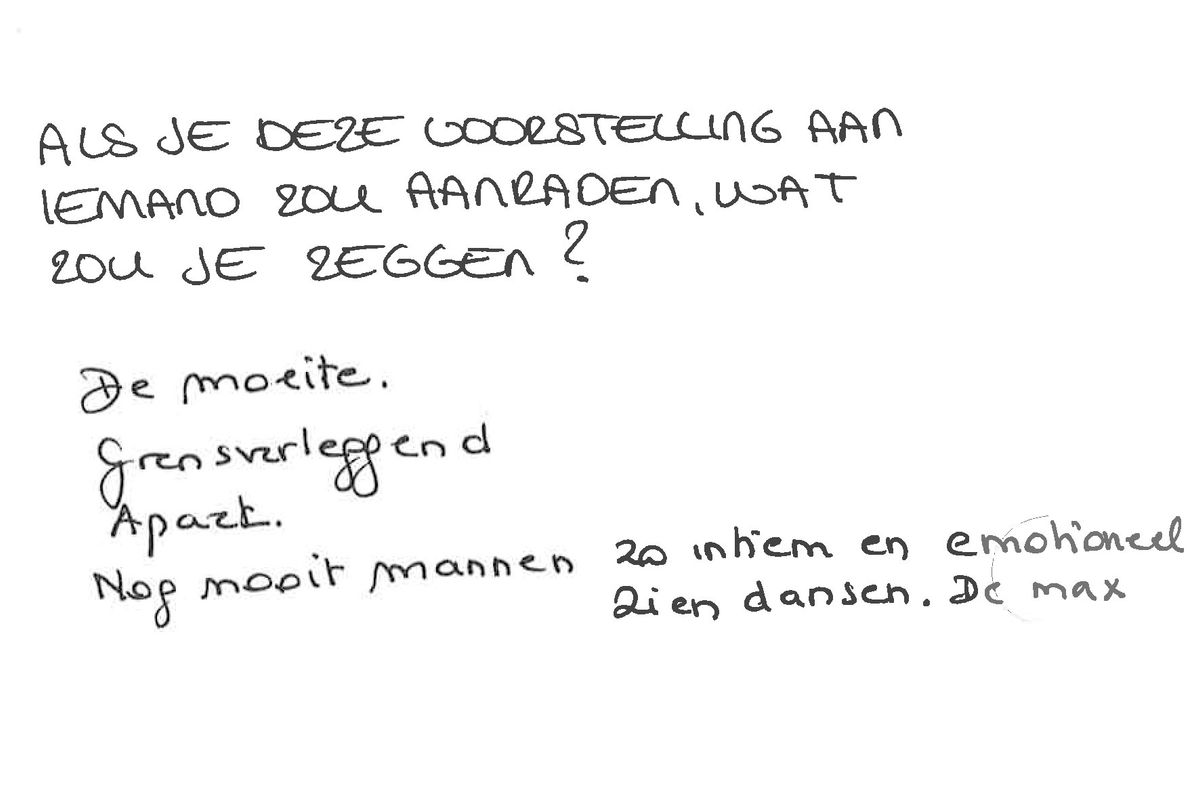 ALS JE DEZE VOORSTELLING AAN
IEMAND ZOU AANRADEN, WAT
ZOU JE ZEGGEN?
De moeite.
Grensverleggend
Apart.
Nog nooit mannen zo intiem en emotioneel
zien dansen. De max